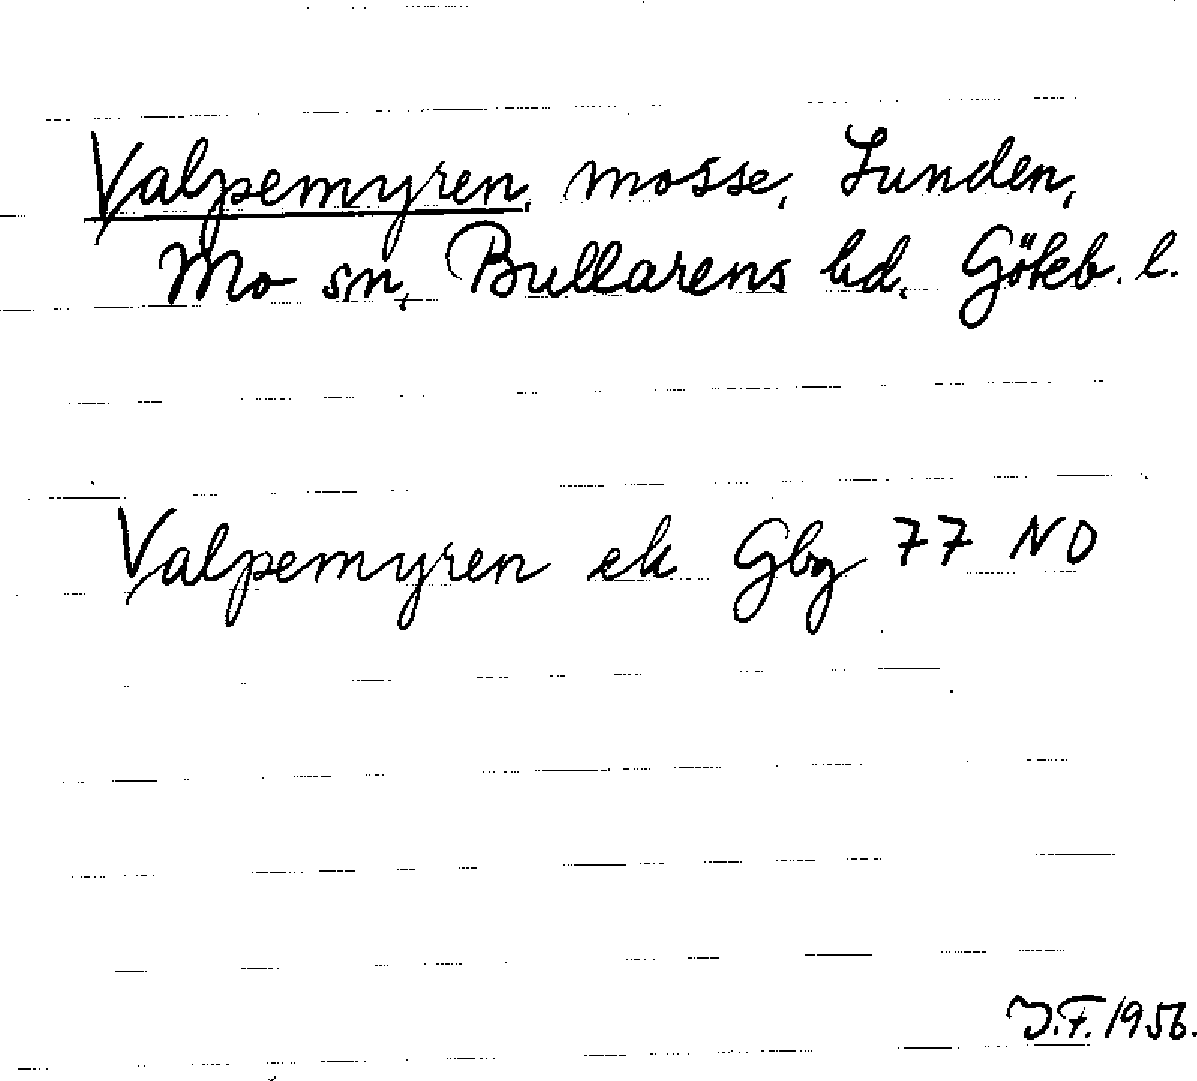 Valpemyren, mosse, Lunden,
Mo sn, Bullarens hd. Göteb. l.
Valpemyren ek Gbg 77 NO
J.F. 1956.